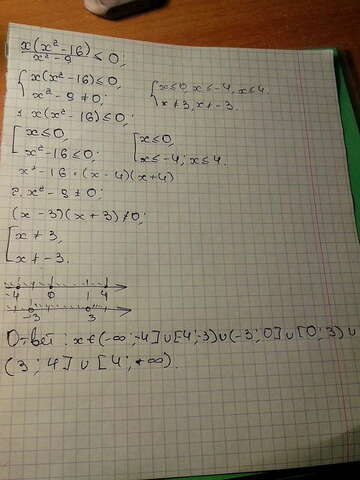 x(x²-16)/x²-9 ≤ 0;
{ x(x²-16) ≤ 0, { x ≤ 0, x ≤ -4, x ≤ 4.
x²-9 ≠ 0; x ≠ 3, x ≠ -3.
1. x(x²-16) ≤ 0;
[ x ≤ 0, [ x ≤ 0,
x²-16 ≤ 0; x ≤ -4; x ≤ 4.
x²-16 = (x-4)(x+4)
2. x²-9 ≠ 0;
(x-3)(x+3) ≠ 0;
[ x ≠ 3,
x ≠ -3.
-4 0 4
-3 3
Ответ: x ∈ (-∞;-4] ∪ [4;-3) ∪ (-3;0] ∪ [0;3) ∪
(3;4] ∪ [4;+∞).